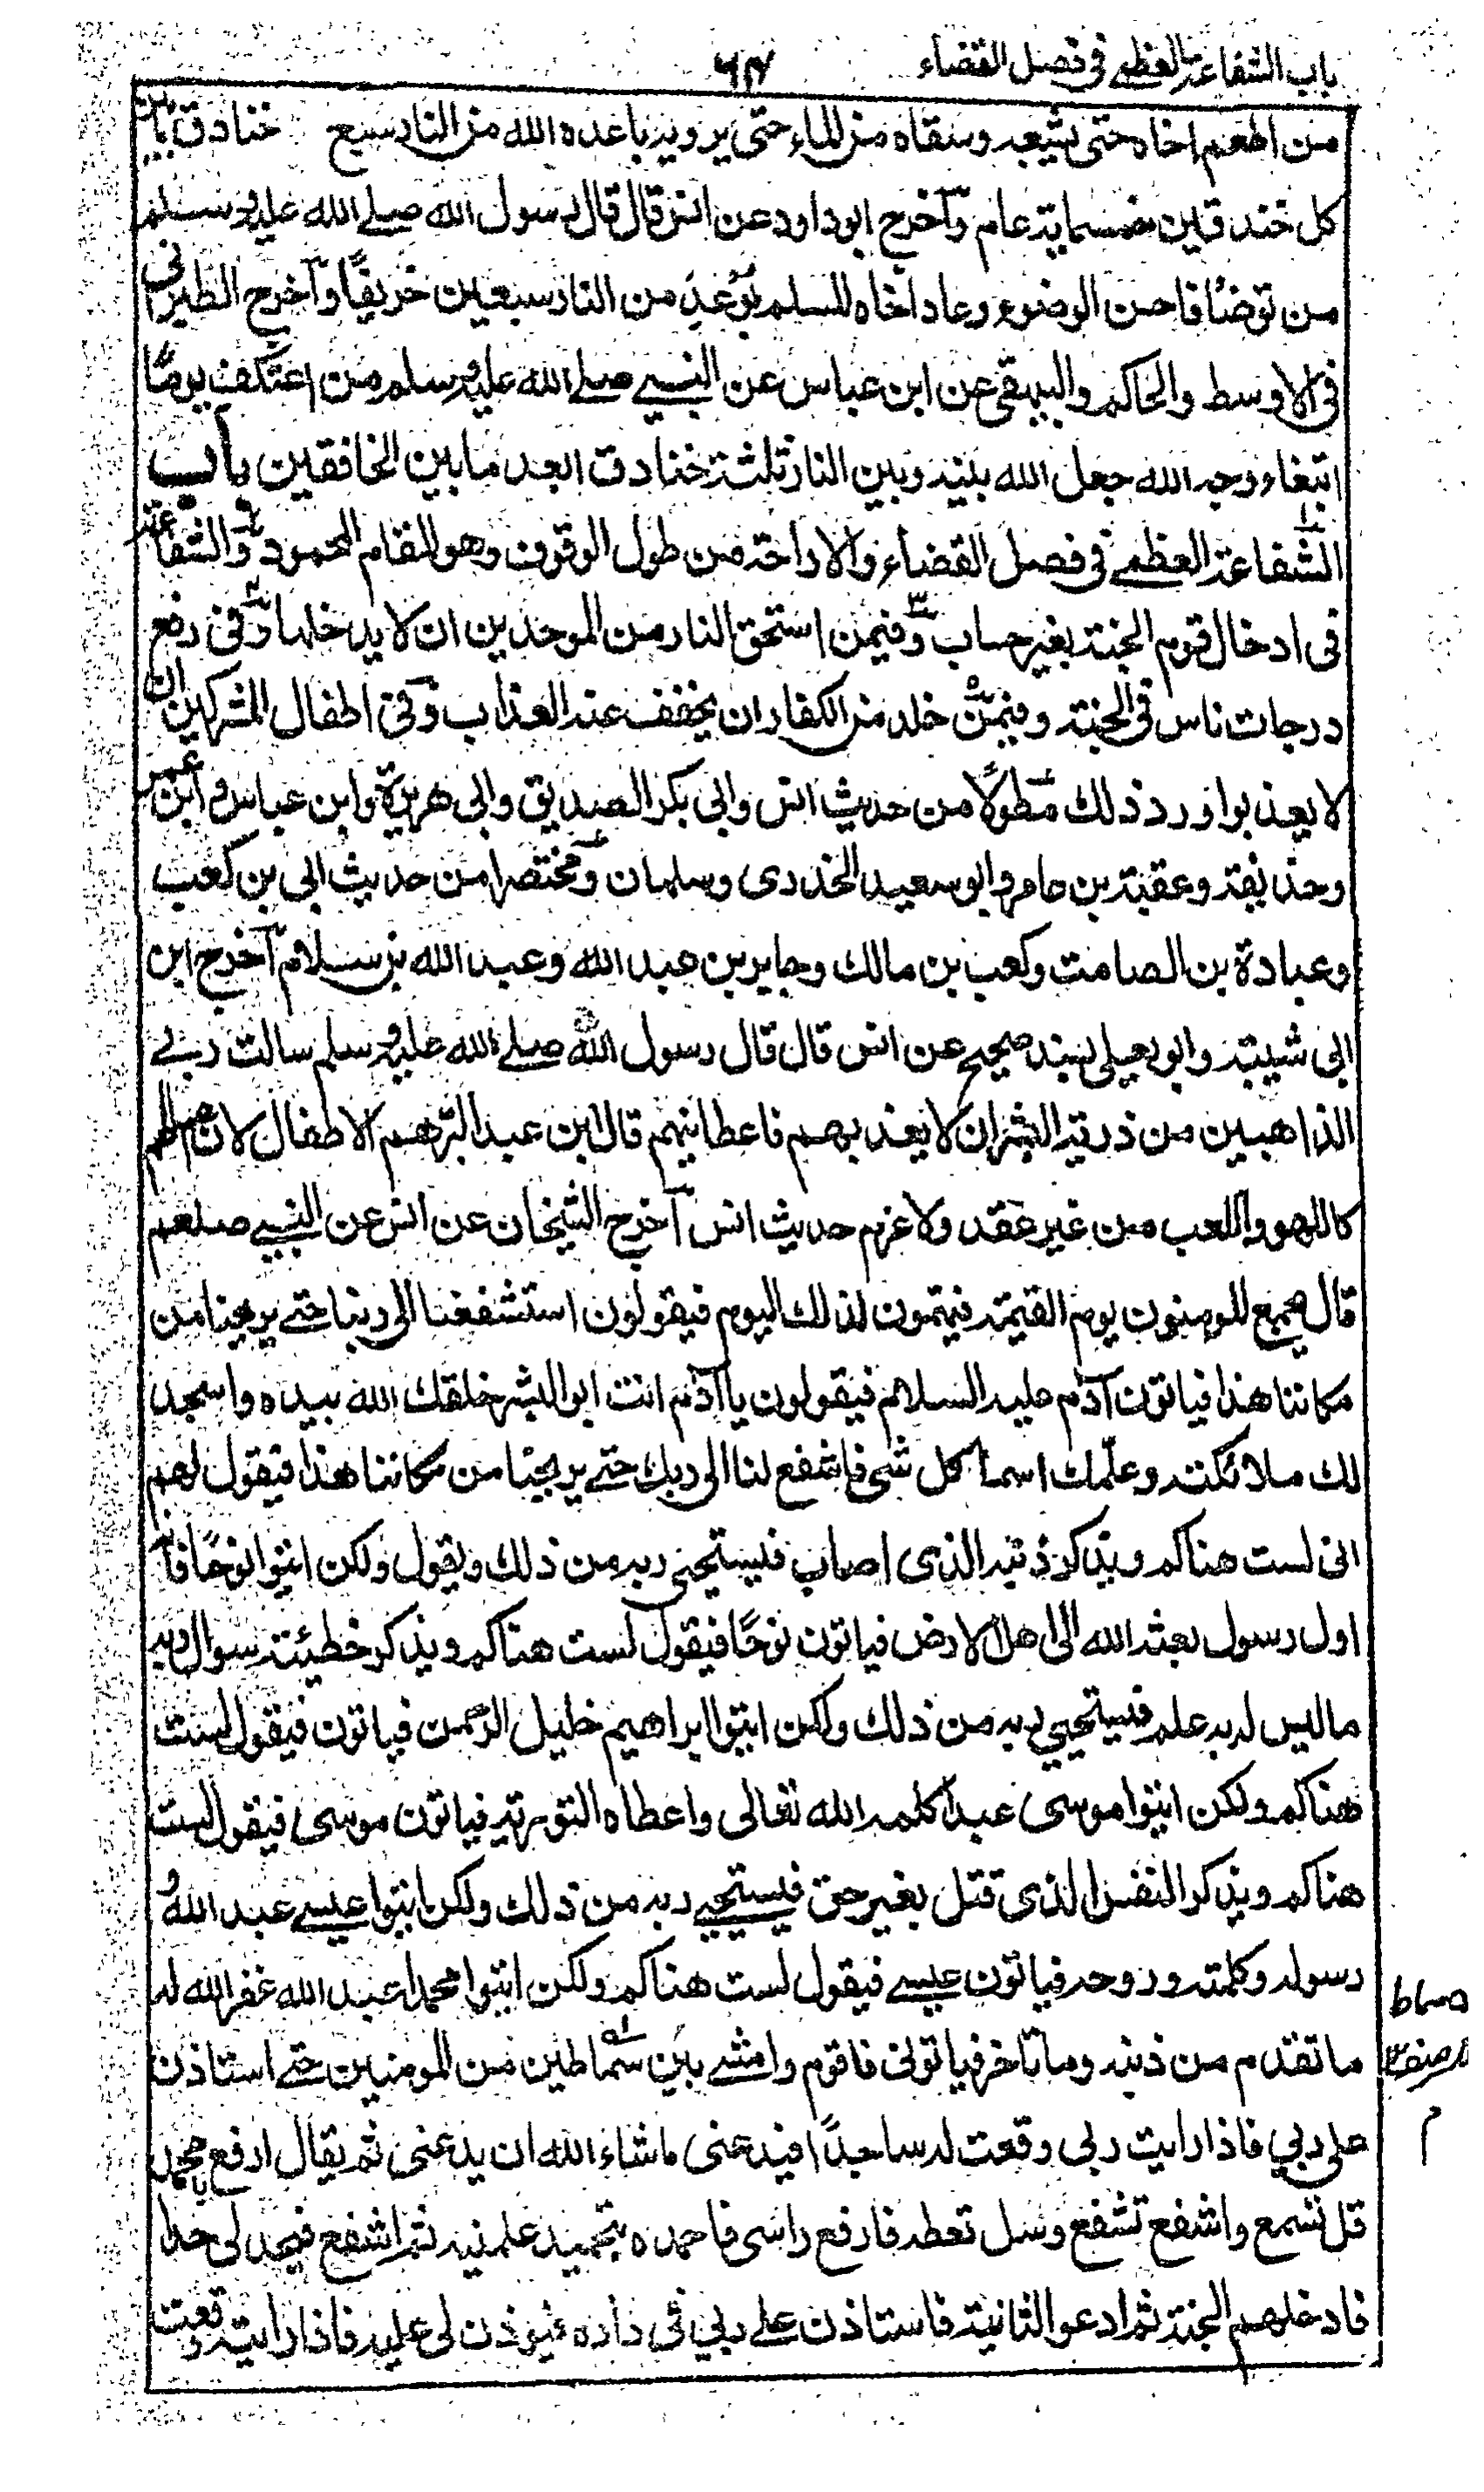 باب الشفاعة العظمے فی فصل القضاء
من اطعم اخاه حتی یشبعه وسقاه من الماء حتی یرویه باعده الله من النار سبع خنادق ما بین
کل خندقین خمسمایة عام وآخرج ابوداود عن انس قال قال رسول الله صلے الله علیه وسلم
من توضأ فاحسن الوضوء وعاد اخاه المسلم بوعد من النار سبعین خریفًا وآخرج الطبرانی
فی الاوسط والحاکم والبیهقی عن ابن عباس عن النبے صلے الله علیه وسلم من اعتکف یومًا
ابتغاء وجه الله جعل الله بینه وبین النار ثلثة خنادق ابعد ما بین الخافقین باب
الشفاعة العظمے فی فصل القضاء والاراحة من طول الوقوف وهو المقام المحمود والشفاعة
فی ادخال قوم الجنة بغیر حساب وفیمن استحق النار من الموحدین ان لا یدخلها وفی رفع
درجات ناس فی الجنة وفیمن خلد من الکفار ان یخفف عنه العذاب وفی اطفال المشرکین ان
لا یعذبوا ورد ذلك مطولًا من حدیث انس وابی بکر الصدیق وابی هریرة وابن عباس وابن عمر
وحذیفة وعقبة بن عامر وابو سعید الخدری وسلمان ومختصرا من حدیث ابی بن کعب
وعبادة بن الصامت وکعب بن مالك وجابر بن عبد الله وعبد الله بن سلام آخرج ابن
ابی شیبة وابو یعلی بسند صحیح عن انس قال قال رسول الله صلے الله علیه وسلم سالت ربے
اللاهین من ذریة البشر ان لا یعذبهم فاعطانیهم قال ابن عبد البر هم الاطفال لان اعمالهم
کاللهو واللعب من غیر عقد ولا عزم حدیث انس آخرج الشیخان عن انس عن النبے صلعم
قال یجمع المومنون یوم القیمة فیهتمون لذلك الیوم فیقولون استشفعنا الی ربنا حتے یریحنا من
مکاننا هذا فیاتون آدم علیه السلام فیقولون یا آدم انت ابو البشر خلقك الله بیده واسجد
لك ملائکته وعلّمك اسماء کل شی فاشفع لنا الی ربك حتے یریحنا من مکاننا هذا فیقول لهم
انی لست هناکم ویذکر ذنبه الذی اصاب فیستحی ربه من ذلك ویقول ولکن ائتوا نوحًا فانه
اول رسول بعثه الله الی اهل الارض فیاتون نوحًا فیقول لست هناکم ویذکر خطیئته سوال ربه
ما لیس له به علم فیستحیي ربه من ذلك ولکن ائتوا ابراهیم خلیل الرحمن فیاتون فیقول لست
هناکم ولکن ائتوا موسی عبدا کلمه الله تعالی واعطاه التوریة فیاتون موسی فیقول لست
هناکم ویذکر النفس الذی قتل بغیر حق فیستحیے ربه من ذلك ولکن ائتوا عیسے عبد الله و
رسوله وکلمته وروحه فیاتون عیسے فیقول لست هناکم ولکن ائتوا محمدا عبد الله غفر الله له
ما تقدم من ذنبه وما تاخر فیاتونی فاقوم وامشے بین سماطین من المومنین حتے استاذن
علی ربی فاذا رایت ربی وقعت له ساجدًا فیدعنی ما شاء الله ان یدعنی ثم یقال ارفع یا محمد
قل تسمع واشفع تشفع وسل تعطه فارفع راسی فاحمده بتحمید علمنیه ثم اشفع فیحد لی حدا
فادخلهم الجنة ثم ادعو الثانیة فاستاذن علے ربی فی داره فیوذن لی علیه فاذا رایته وقعت